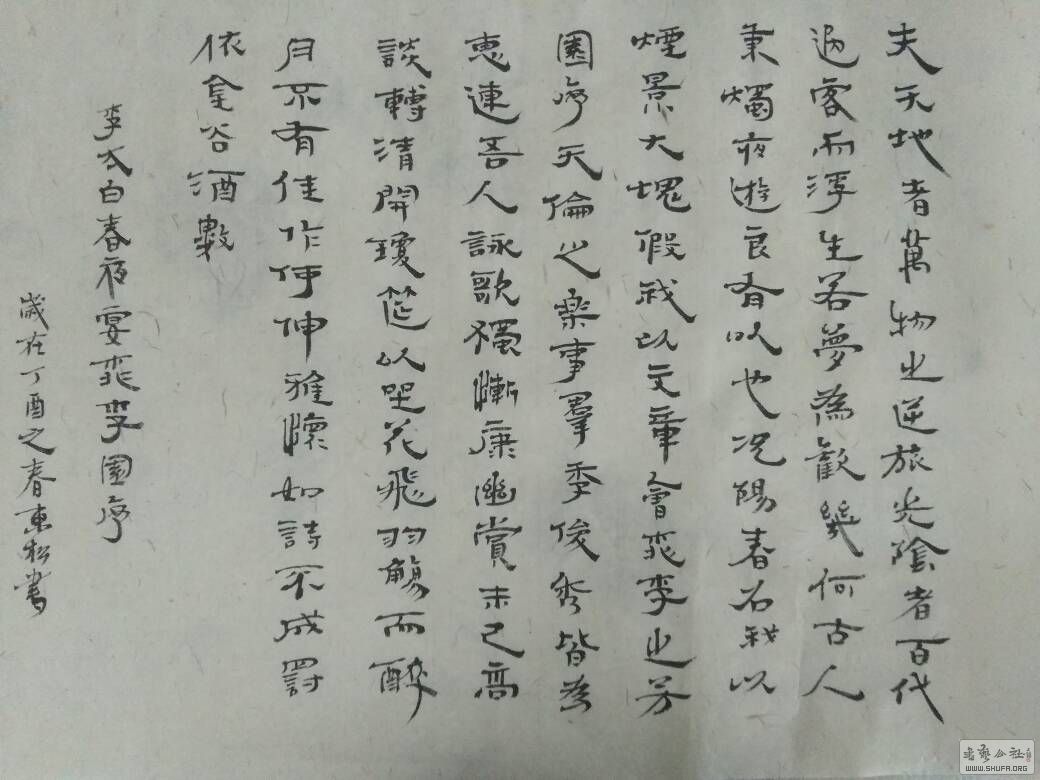 夫天地者萬物之逆旅光陰者百代
過客而浮生若夢為歡幾何古人
秉燭夜遊良有以也况陽春召我以
煙景大塊假我以文章會桃李之芳
園序天倫之樂事羣季俊秀皆為
惠連吾人詠歌獨慚康幽賞未已高
談轉清開瓊筵以坐花飛羽觴而醉
月不有佳作何伸雅懷如詩不成罰
依金谷酒數
李太白春夜宴桃李園序
歲在丁酉之春東松書
書藝公社
WWW.SHUFA.ORG